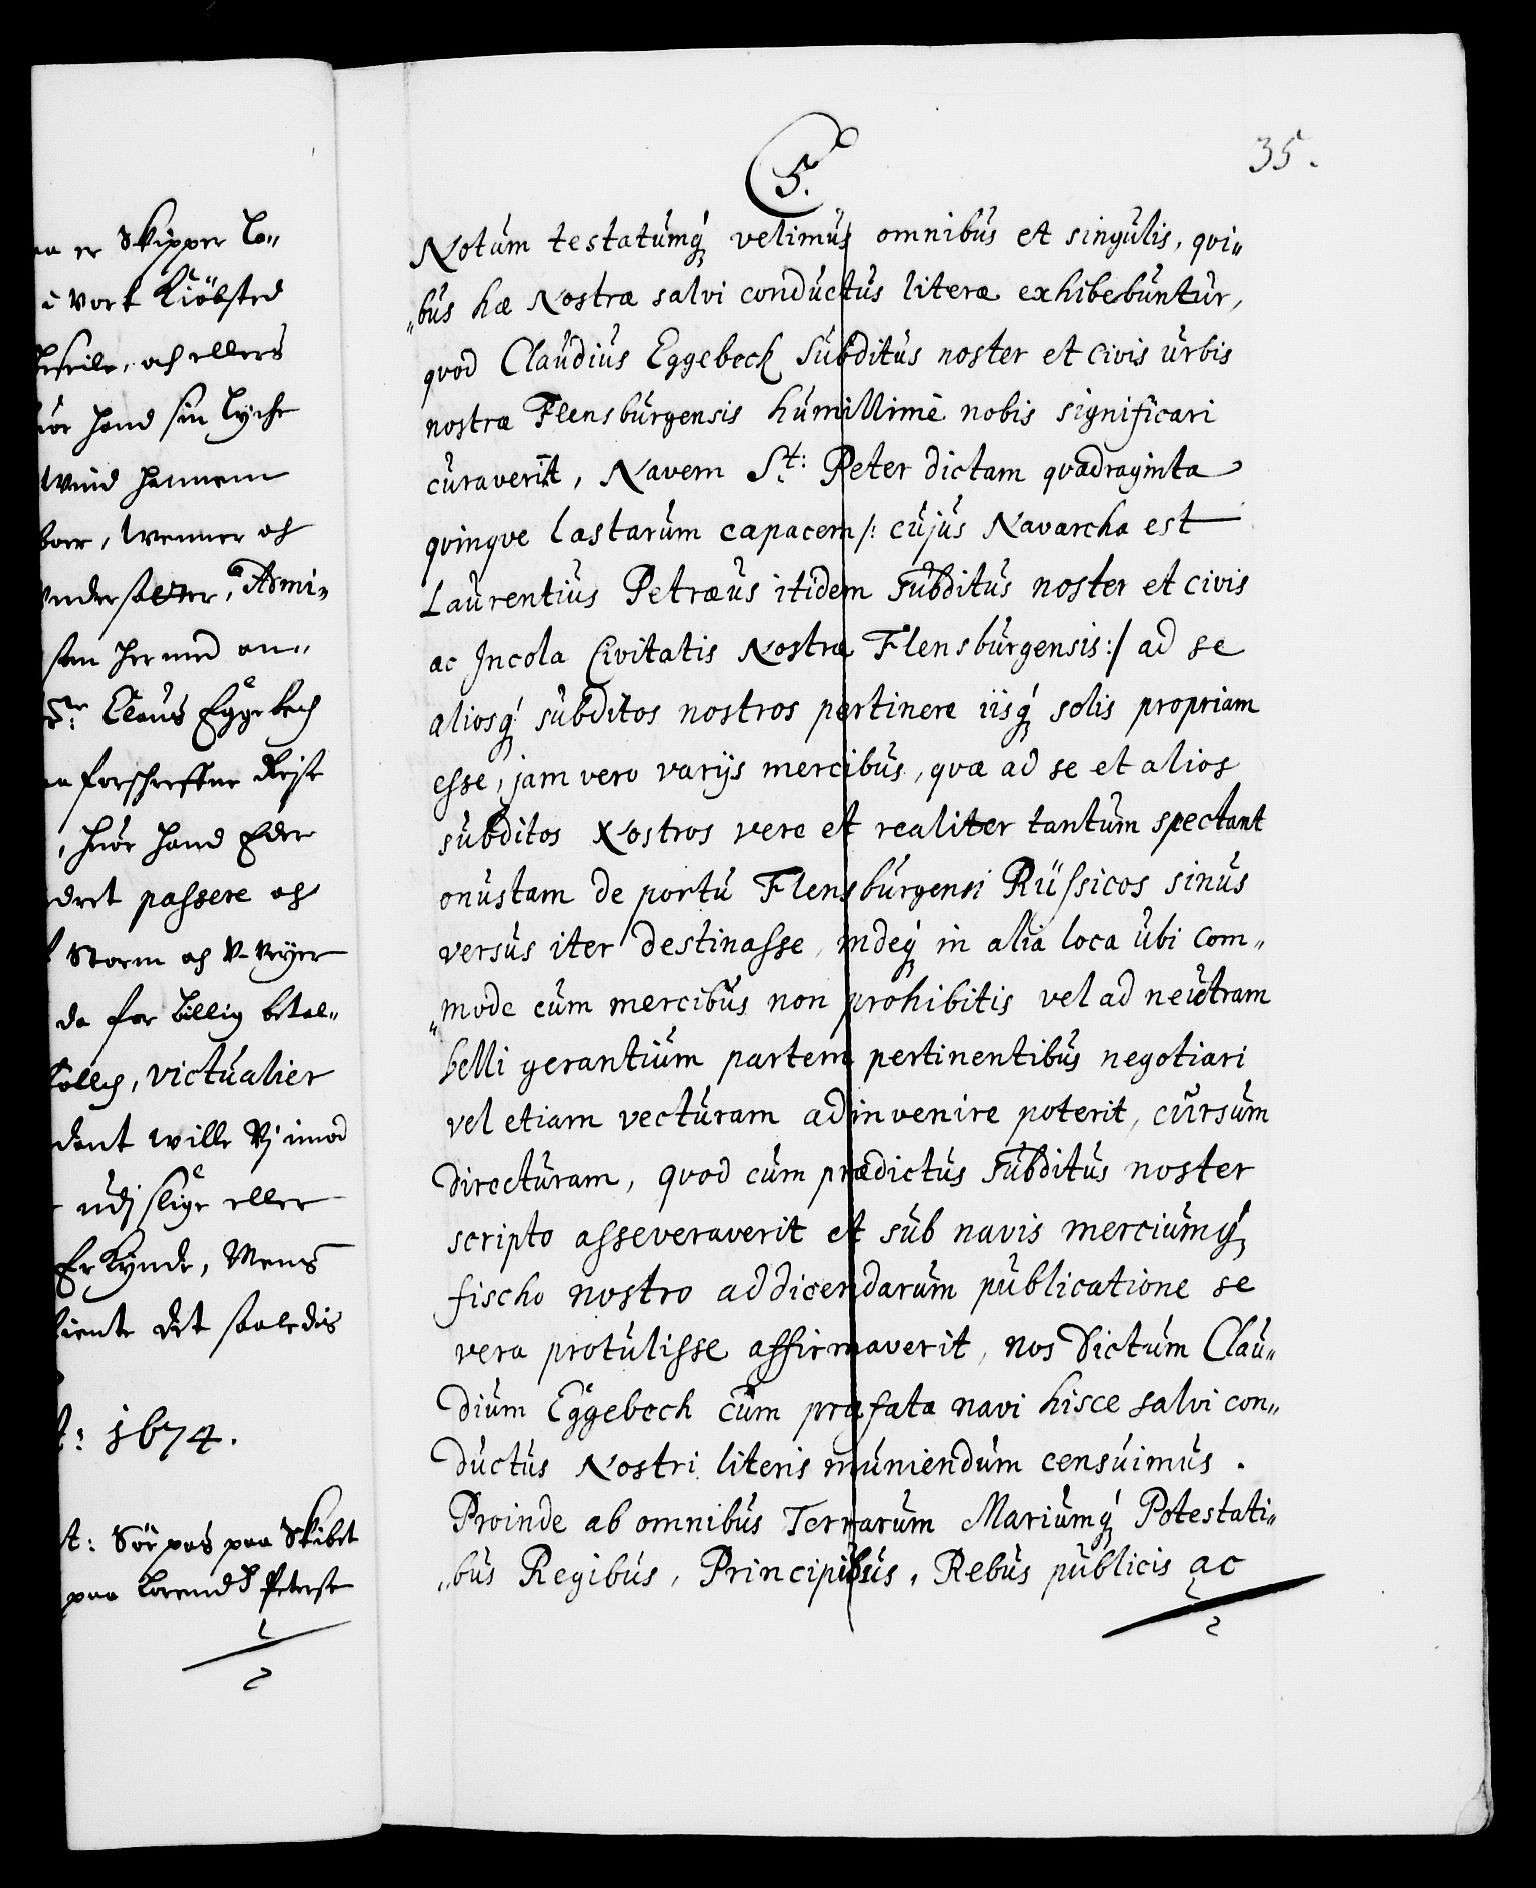 aa er Skipper Lo„
i vort Kiöbsted
och ellers
hand sin Lyche
hannem
boer, Wenner och
Undersatter, Armi„
som hermed an„
Sr: Claus Eggebech
forschreffne Reise
, huor hand Eder
passere och
Storm och
da for billig betal„
victualier
wille Vj imod
udj slige eller
Mens
det saaledis
t: 1674.
t: Söe pas paa Skibet
paa Lorendtz Peterse
35.
5.
Notum testatumq́ velimus omnibus et singulis, qvi„
„bus hæ Nostræ salvi conductus literæ exhibebuntur,
qvod Claudius Eggebeck Subditus noster et civis urbis
nostræ Flensburgensis humillimè nobis significari
curaverit, Navem St: Peter dictam qvadraginta
qvinqve lastarum capacem /: cujus Navarcha est
Laurentius Petræus itidem Subditus noster et civis
ac Jncola Civitatis Nostræ Flensburgensis :/ ad se
aliosq́ subditos nostros pertinere iisq́ solis propriam
esse, jam vero varijs mercibus, qvæ ad se et alios
subditos Nostros vere et realiter tantum spectant
onustam de portu Flensburgensi Russicos sinus
versus iter destinasse, indeq́ in alia loca ubi com„
„mode cum mercibus non prohibitis vel ad neutram
belli gerantium partem pertinentibus negotiari
vel etiam vecturam adinvenire poterit, cursum
directuram, qvod cum prædictus Subditus noster
scripto asseveraverit et sub navis merciumq́
fischo nostro addicendarum publicatione se
vera protulisse affirmaverit, nos Dictum Clau„
dium Eggebeck cum præfata navi hisce salvi con„
ductus Nostri literis muniendum censuimus.
Proinde ab omnibus Terrarum Mariumq́ Potestati„
„bus Regibus, Principibus, Rebus publicis ac